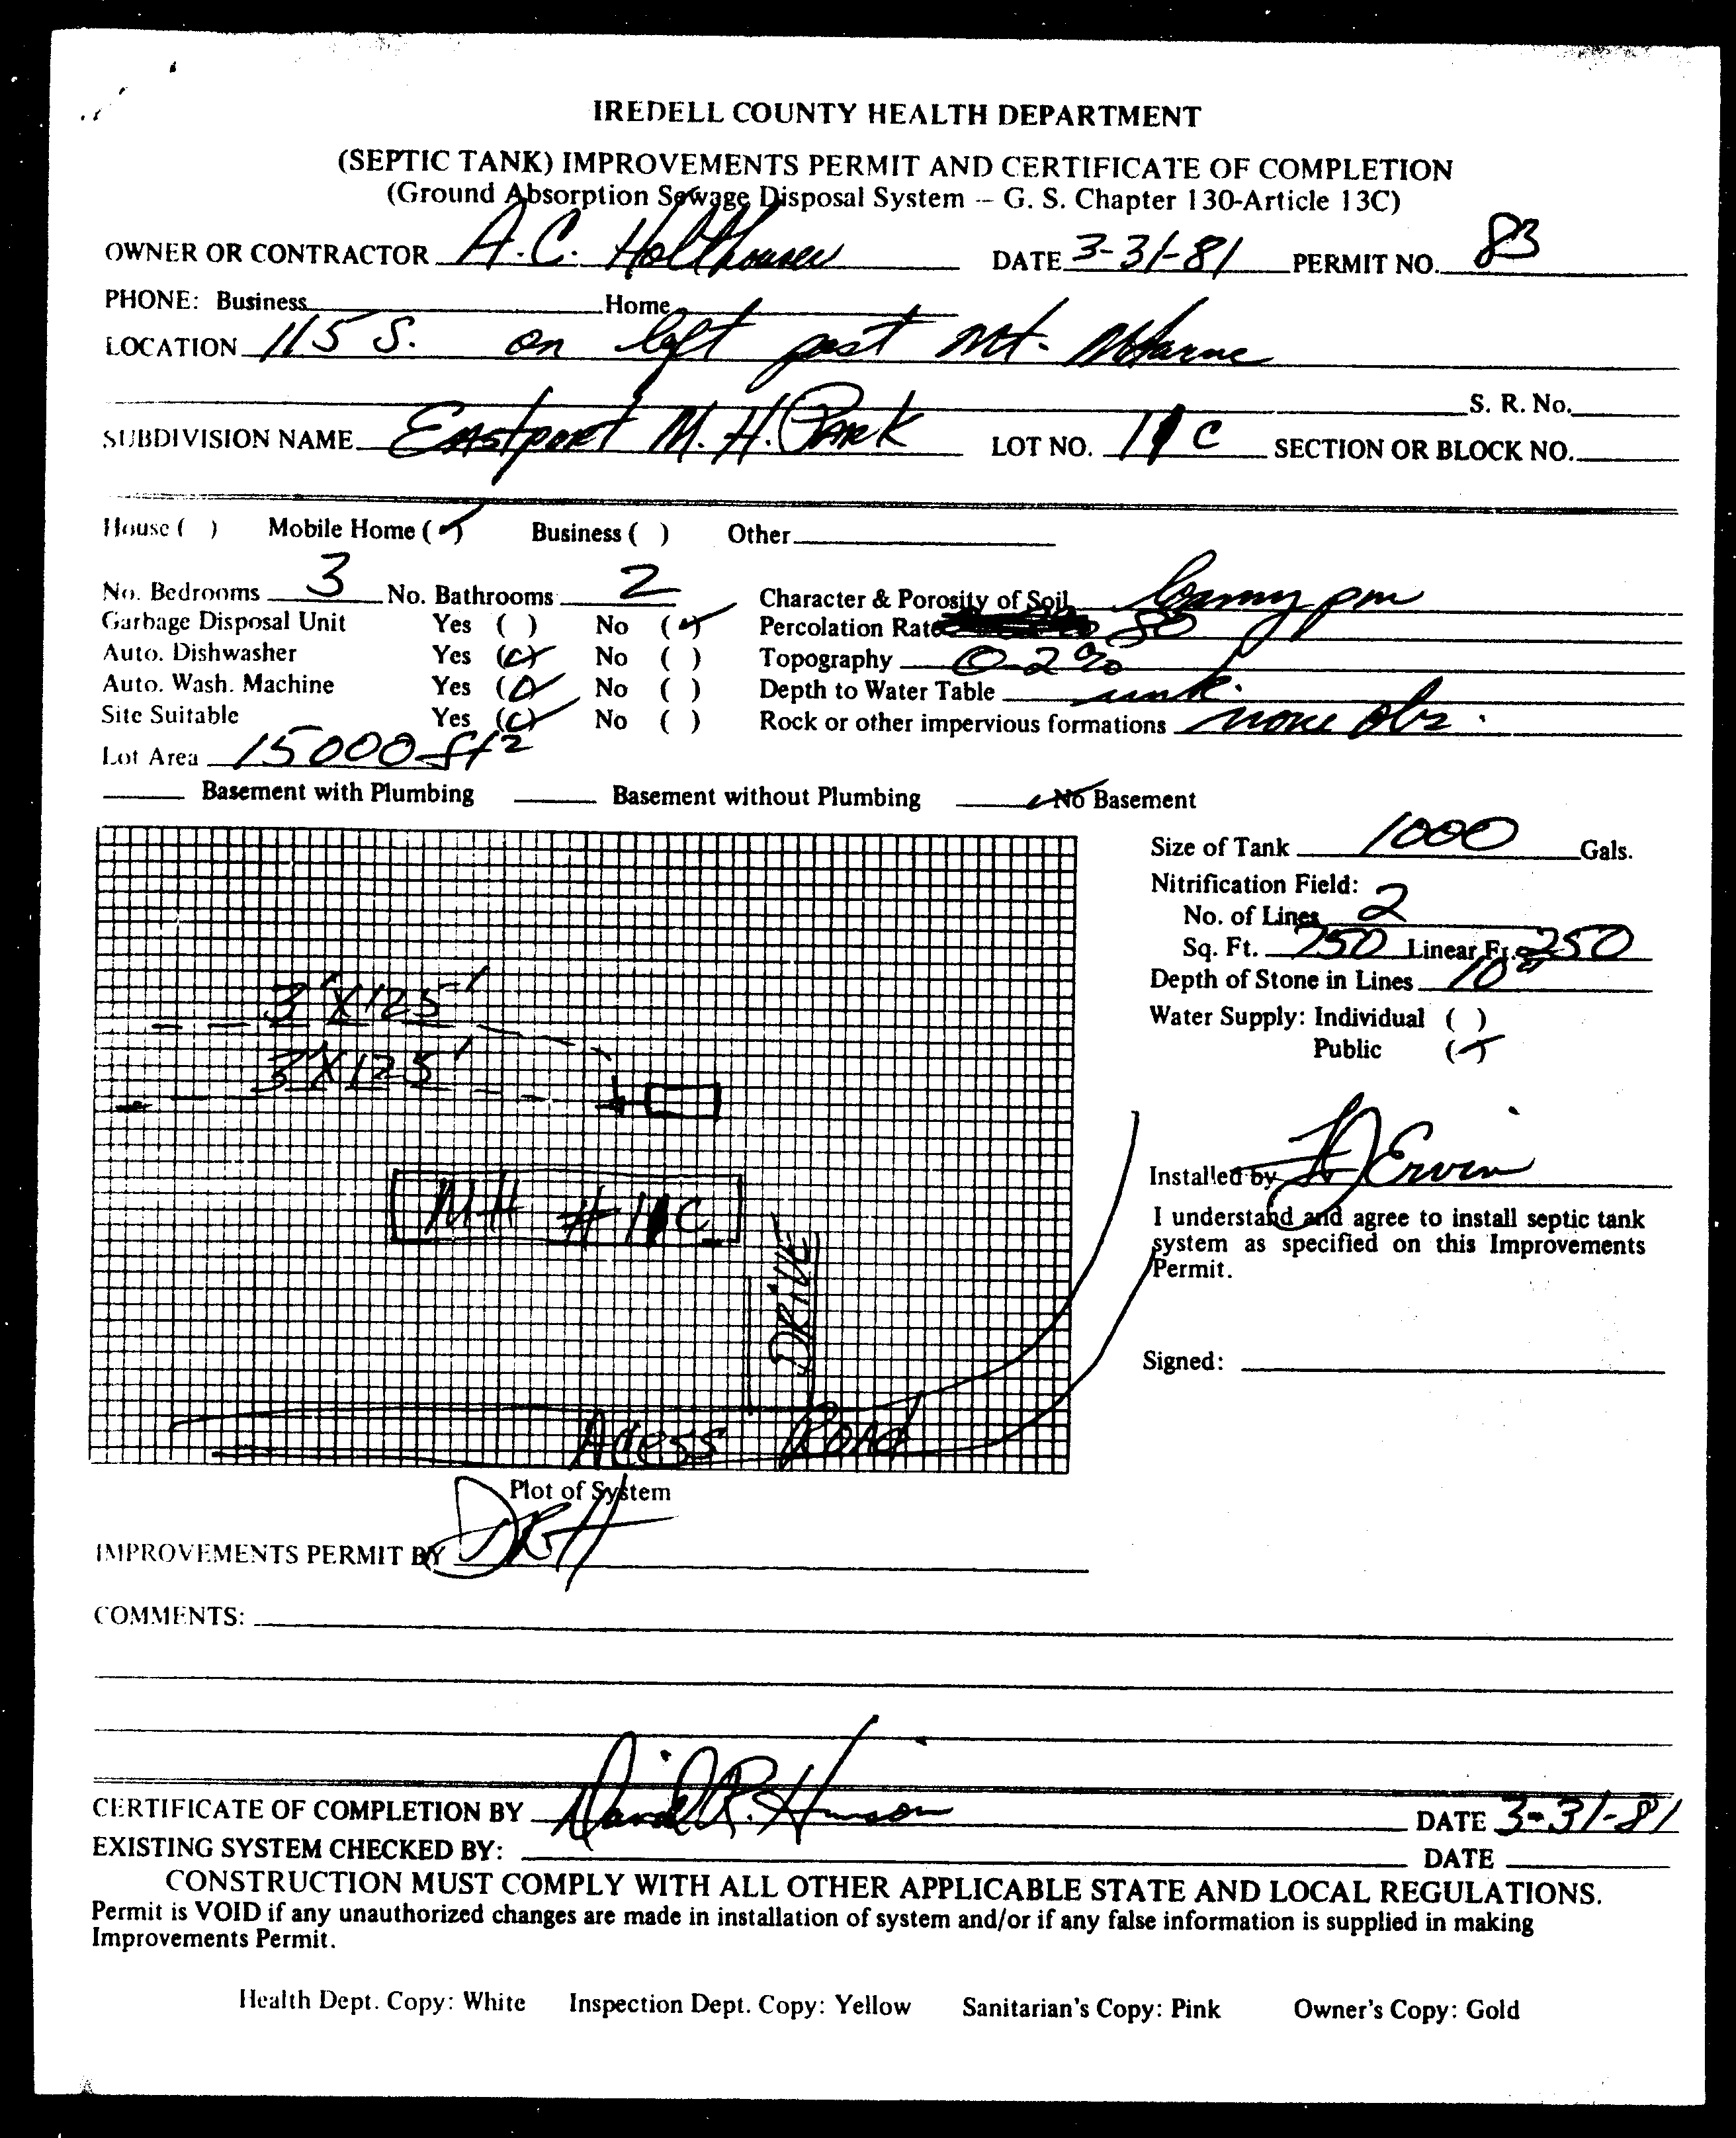 IREDELL COUNTY HEALTH DEPARTMENT
(SEPTIC TANK) IMPROVEMENTS PERMIT AND CERTIFICATE OF COMPLETION
(Ground Absorption Sewage Disposal System -- G. S. Chapter 130-Article 13C)
OWNER OR CONTRACTOR A.C. Holthouser DATE 3-31-81 PERMIT NO. 83
PHONE: Business Home
LOCATION 115 S. on left past Mt. Mourne
S. R. No.
SUBDIVISION NAME Eastport M. H. Park LOT NO. 11 C SECTION OR BLOCK NO.
House ( ) Mobile Home (✓) Business ( ) Other
No. Bedrooms 3 No. Bathrooms 2 Character & Porosity of Soil loamy
Garbage Disposal Unit Yes ( ) No (✓) Percolation Rate 50
Auto. Dishwasher Yes (✓) No ( ) Topography 0-2%
Auto. Wash. Machine Yes (✓) No ( ) Depth to Water Table unk.
Site Suitable Yes (✓) No ( ) Rock or other impervious formations none obs.
Lot Area 15000 ft²
Basement with Plumbing Basement without Plumbing ✓ No Basement
Size of Tank 1000 Gals.
Nitrification Field:
No. of Lines 2
Sq. Ft. 750 Linear Ft. 250
Depth of Stone in Lines 10"
Water Supply: Individual ( )
Public (✓)
3' X 125'
3' X 125'
MH # 11C
DRIVE
Acess Road
Installed by Ervin
I understand and agree to install septic tank
system as specified on this Improvements
Permit.
Signed:
Plot of System
IMPROVEMENTS PERMIT BY DRH
COMMENTS:
CERTIFICATE OF COMPLETION BY David R. Hinson DATE 3-31-81
EXISTING SYSTEM CHECKED BY: DATE
CONSTRUCTION MUST COMPLY WITH ALL OTHER APPLICABLE STATE AND LOCAL REGULATIONS.
Permit is VOID if any unauthorized changes are made in installation of system and/or if any false information is supplied in making
Improvements Permit.
Health Dept. Copy: White Inspection Dept. Copy: Yellow Sanitarian's Copy: Pink Owner's Copy: Gold